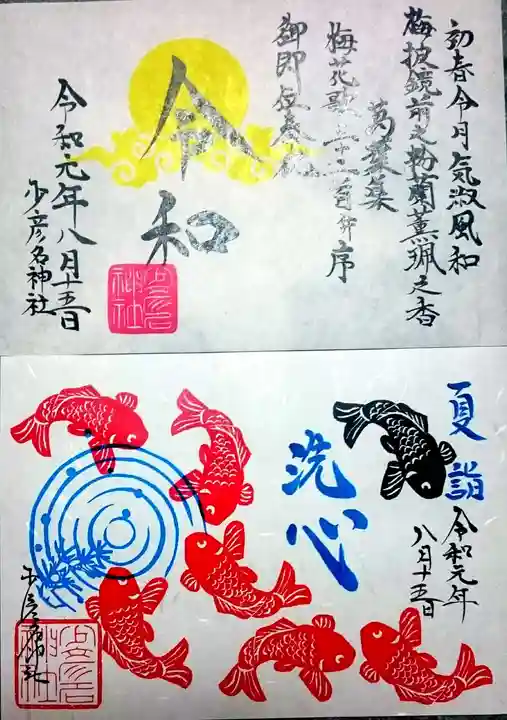 初春令月気淑風和
梅披鏡前之粉蘭薫珮之香
萬葉集
梅花歌三十二首并序
御即位奉祝
令和
令和元年八月十五日
少彦名神社
夏詣
令和元年
八月十五日
洗心